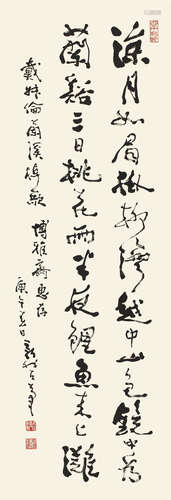 涼月如眉掛柳灣越中山色鏡中看
蘭谿三日桃花雨半夜鯉魚来上灘
戴叔倫蘭溪棹歌
博雅齋惠存
庚午